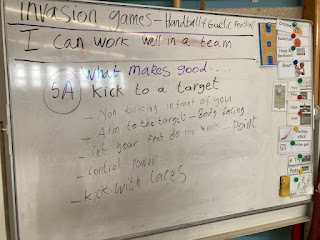 invasion games - Handball + Gaelic Football
I can work well in a team
What makes good....
5A kick to a target
- Non kicking infront of you
- Aim to the target - Body facing
- let your feet do the work - Point
- control power
- kick with laces